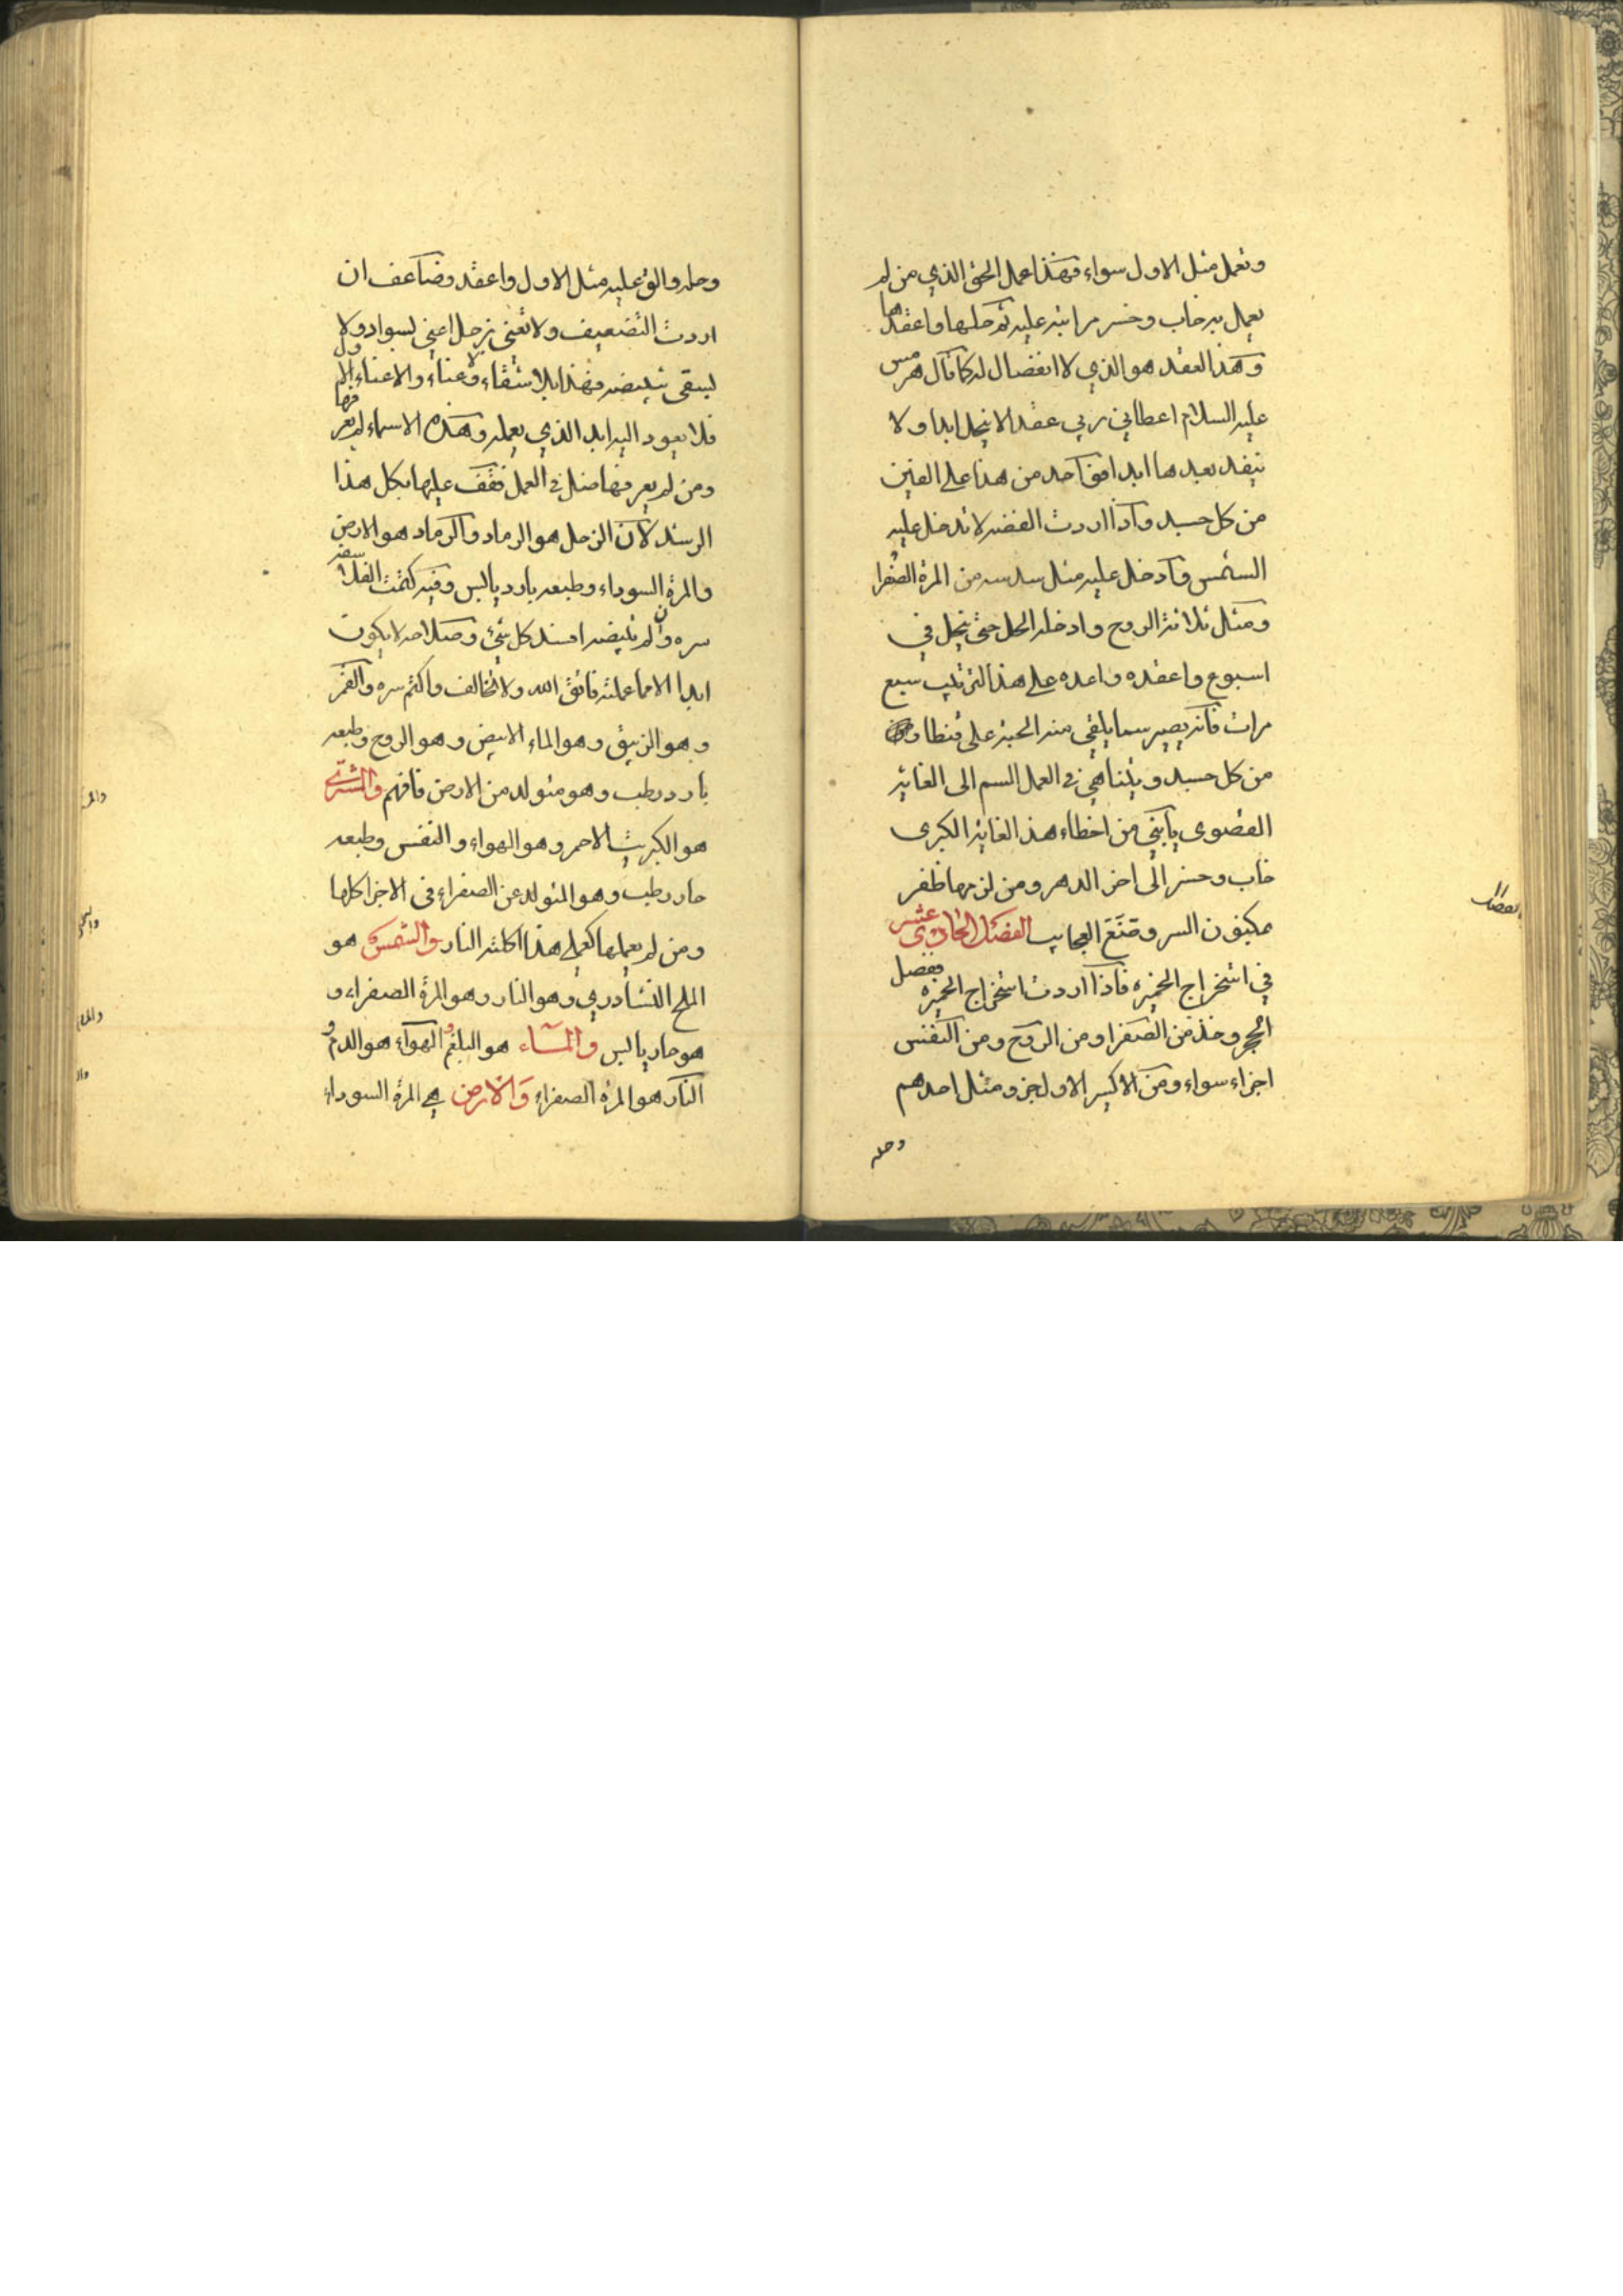 وتعمل مثل الاول سواء فهذا عمل الحق الذي من لم
يعمل به خاب وخسر مرا تبه عليه ثم حلها واعقدها
وهذا العقد هو الذي لا انفصال له كما قال هرمس
عليه السلام اعطاني ربي عقدا لا ينحل ابدا ولا
ينفد بعدها ابدا فواحد من هذا على الفين
من كل جسد واذا اردت الفضه لا تدخل عليه
الشمس وادخل عليه مثل سدسه من المرة الصفرا
ومثل ثلاثة الروح وادخله الحل حتى ينحل في
اسبوع واعقده واعده على هذا الترتيب سبع
مرات فانه يصير سما يلقى منه الحبة على قنطار
من كل جسد ويتناهي في العمل السم الى الغاية
القصوى يا بني من اخطاء هذه الغاية الكبرى
خاب وخسر الى اخر الدهر ومن لزمها ظفر
مكنون السر وقنع العجايب الفصل الحادي عشر
في استخراج الخميره فاذا اردت استخراج الخميره ففصل
الحجر وخذ من الصفرا ومن الروح ومن النفس
اجزاء سواء ومن الاكسير الاول جزو مثل احدهم
وحله
وحله والق عليه مثل الاول واعقد وضاعف ان
اردت التضعيف ولا تعني بزحل اعني لسواد ولا
لييقى تبييضه فهذا بلا شقاء ولا عناء والاعناء
فلا يعود اليه ابد الذي يعمله وهذه الاسماء لم يعرفها
ومن لم يعرفها ضل في العمل فقف عليها بكل هذا
الرشد لان الزحل هو الرماد والرماد هو الارض
والمرة السوداء وطبعه بارد يابس وفيه كتمت الفلاسفه
سره وان لم تبيضه افسد كل شئ وصلاحه لا يكون
ابدا الا مما عملته فاتق الله ولا تخالف واكتم سره والقمر
وهو الزيبق وهو الماء الابيض وهو الروح وطبعه
بارد رطب وهو متولد من الارض فافهم والمشتري
هو الكبريت الاحمر وهو الهواء والنفس وطبعه
حار رطب وهو المتولد عن الصفراء في الاجزا كلها
ومن لم يعملها كعملي هذا اكلته النار والشمس هو
الملح النشادري وهو النار وهو المرة الصفراء و
هو حار يابس والماء هو البلغم والهواء هو الدم و
النار هو المرة الصفراء والارض هي المرة السوداء